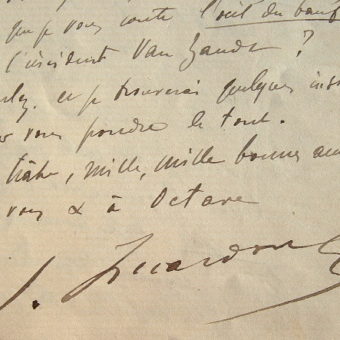 que je vous conte l'œil du bœuf
l'incident Van Zandt ?
et je trouverai quelques ins
vous pondre le tout.
hâte, mille, mille bonnes am
vous & à Octave